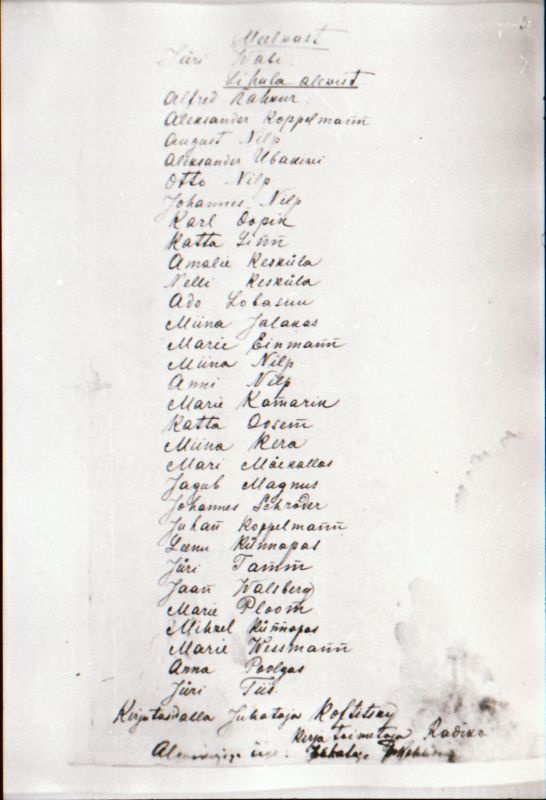 Meelwast
Jüri Wabi
Lihula alewist
Alfred Rahkur
Aleksander Koppelmann̄
August Nilp
Aleksander Ubakiwi
Otto Nilp
Johannes Nilp
Karl Oopik
Katta Linn̄
Amalie Kesküla
Nelli Kesküla
Ado Lobasuu
Miina Jalakas
Marie Einmann̄
Miina Nilp
Anni Nilp
Marie Kamarik
Katta Oosem̄
Miina Kera
Mari Mäekallas
Jagub Magnus
Johannes Schröder
Juhan̄ Koppelmann̄
Leenu Künnapas
Jüri Tamm̄
Jaan̄ Walsberg
Marie Ploom̄
Mihkel Künnapas
Marie Wessmann̄
Anna Poolgas
Jüri Tiis
Kirjutasidalla Juhataja
Kirja toimetaja
õige: Juhataja